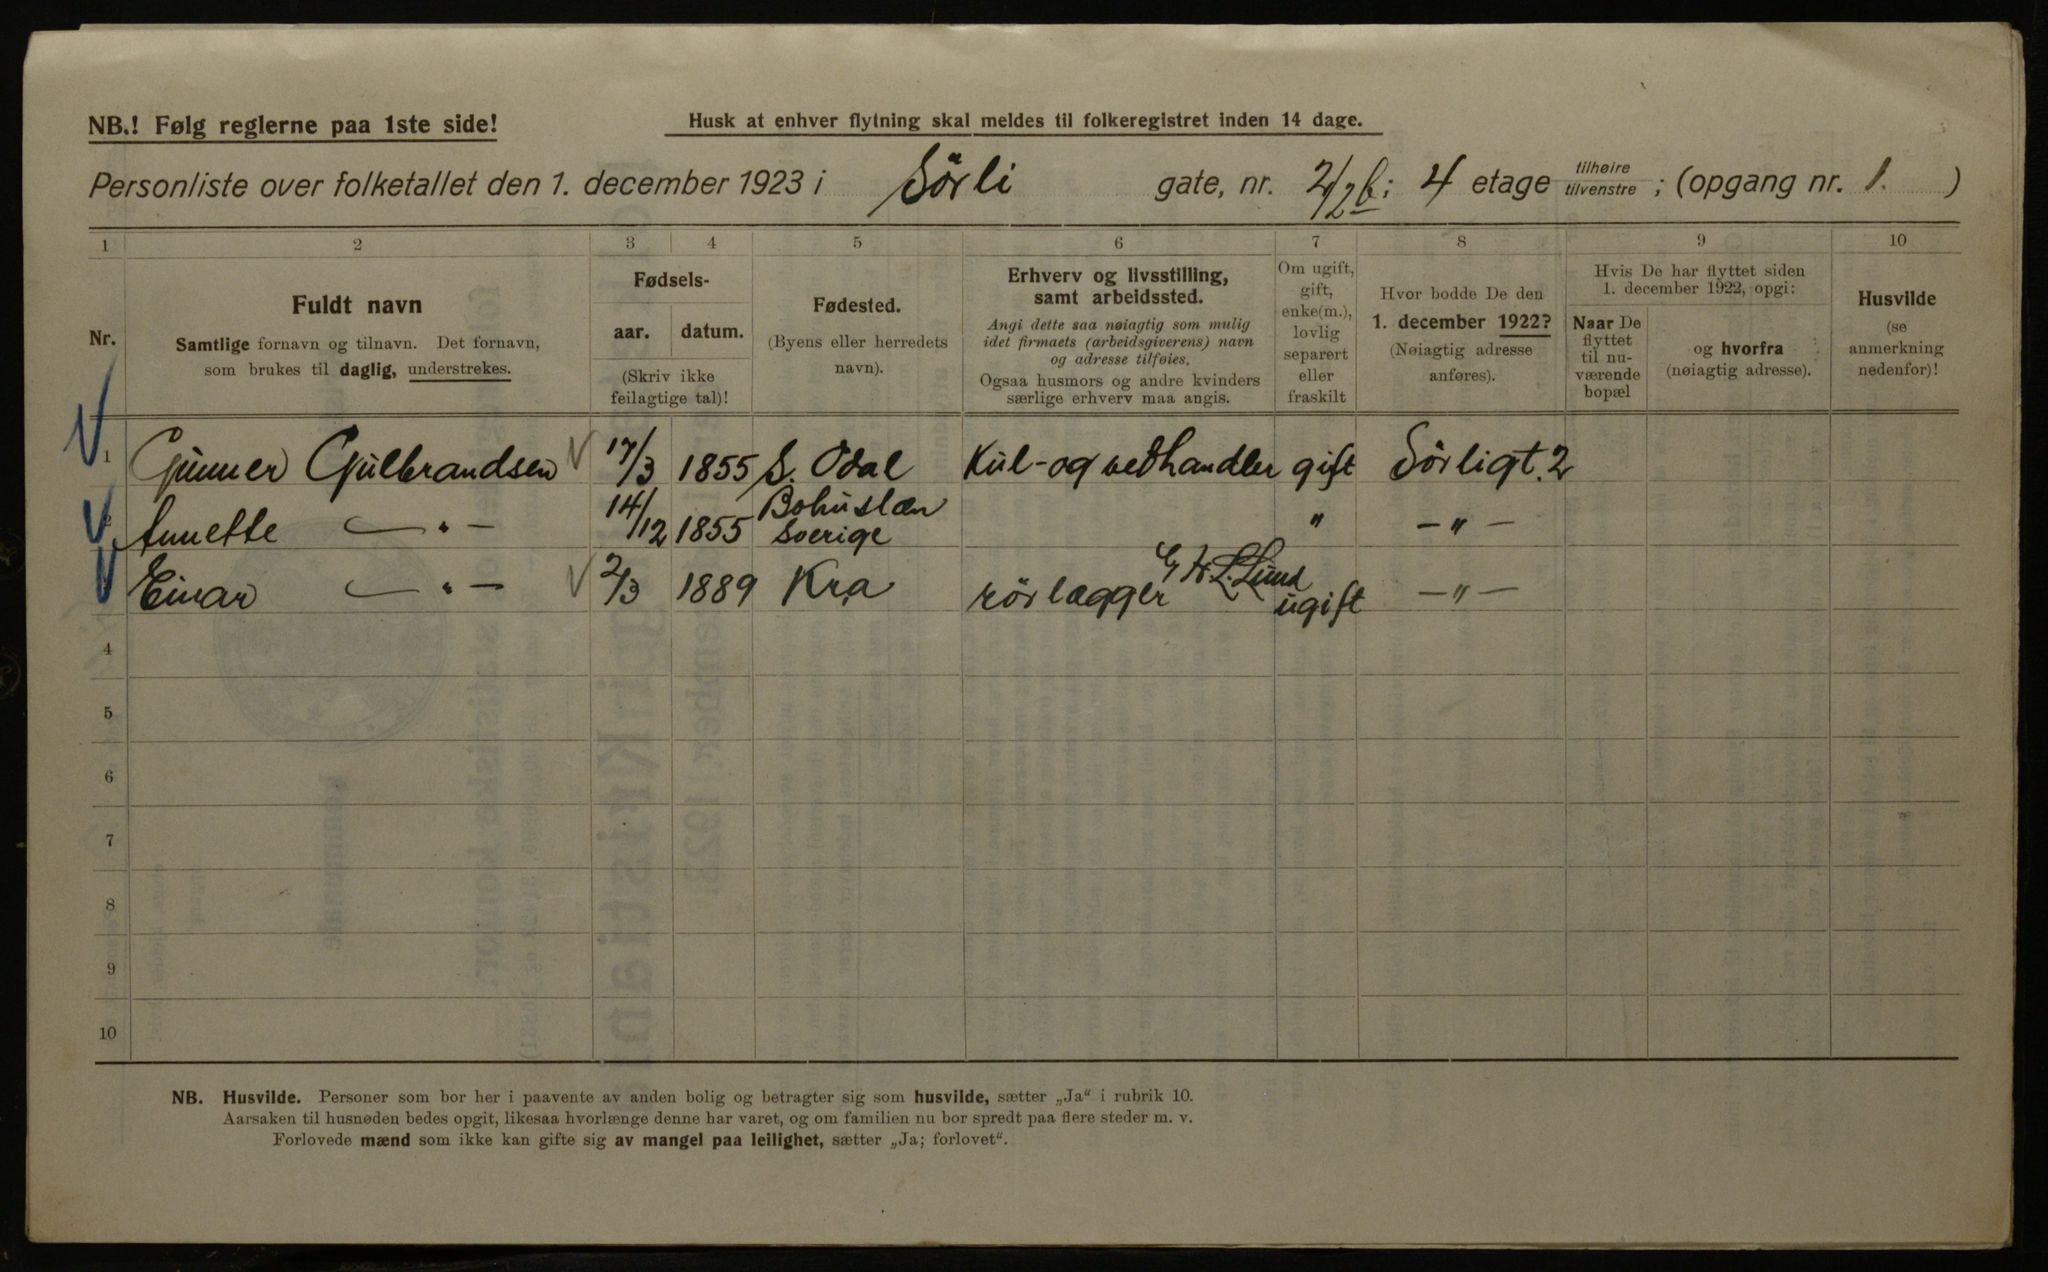 NB.! Følg reglerne paa 1ste side!
Husk at enhver flytning skal meldes til folkeregistret inden 14 dage.
Personliste over folketallet den 1. december 1923 i Sörli gate, nr. 2/2b; 4 etage tilhøire tilvenstre ; (opgang nr. 1. )
1 2 3 4 5 6 7 8 9 10
Nr.
Fuldt navn
Samtlige fornavn og tilnavn. Det fornavn,
som brukes til daglig, understrekes.
Fødsels-
aar. datum.
(Skriv ikke
feilagtige tal)!
Fødested.
(Byens eller herredets
navn).
Erhverv og livsstilling,
samt arbeidssted.
Angi dette saa nøiagtig som mulig
idet firmaets (arbeidsgiverens) navn
og adresse tilføies.
Ogsaa husmors og andre kvinders
særlige erhverv maa angis.
Om ugift,
gift,
enke(m.),
lovlig
separert
eller
fraskilt
Hvor bodde De den
1. december 1922?
(Nøiagtig adresse
anføres).
Hvis De har flyttet siden
1. december 1922, opgi:
Naar De
flyttet
til nu-
værende
bopæl
og hvorfra
(nøiagtig adresse).
Husvilde
(se
anmerkning
nedenfor)!
1 Gunner Gulbrandsen 17/3 1855 S. Odal Kul-og vedhandler gift Sörligt. 2
2 Annette — " — 14/12 1855 Bohuslæn Sverige " — " —
Einar — " — 2/3 1889 Kra rörlægger ugift — " —
4
5
6
7
8
9
10
NB. Husvilde. Personer som bor her i paavente av anden bolig og betragter sig som husvilde, sætter „Ja“ i rubrik 10.
Aarsaken til husnøden bedes opgit, likesaa hvorlænge denne har varet, og om familien nu bor spredt paa flere steder m. v.
Forlovede mænd som ikke kan gifte sig av mangel paa leilighet, sætter „Ja; forlovet“.